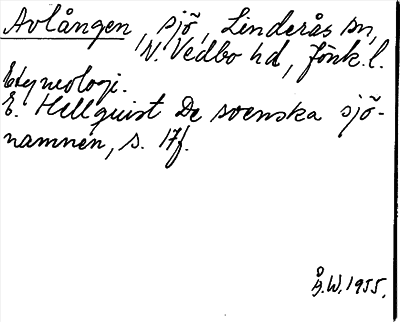 Avlången, sjö, Linderås sn,
N. Vedbo hd, Jönk. l.
Etymologi.
E. Hellquist De svenska sjö-
namnen, s. 17f.
Å.W. 1955.